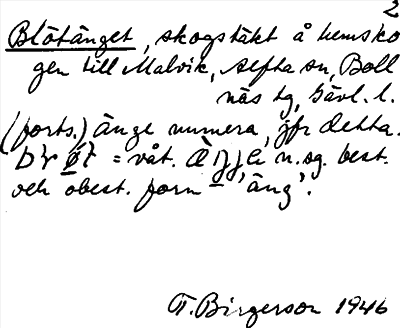 2
Blötänget, skogstäkt å hemsko
gen till Malvik, Alfta sn, Boll
näs tg, Gävl. l.
(forts.) Änge numera, jfr detta.
= våt. n. sg. best.
och obest. form – 'äng'.
T. Birgerson 1946